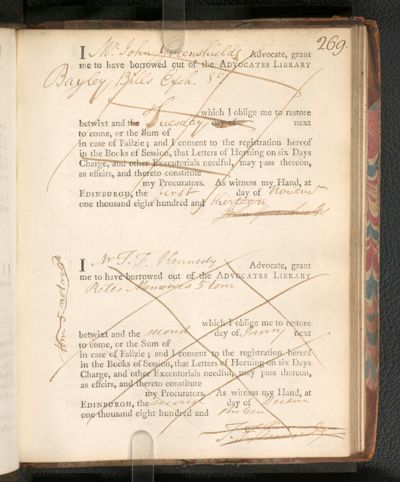 269.
I Mr. John Greenshields Advocate, grant
me to have borrowed out of the ADVOCATES LIBRARY
Bayley Bills Exch. 8o
which I oblige me to restore
betwixt and the Tuesday day of next
to come, or the Sum of
in case of Failzie; and I consent to the registration hereof
in the Books of Session, that Letters of Horning on six Days
Charge, and other Executorials needful, may pass thereon,
as effeirs, and thereto constitute
my Procurators. As witness my Hand, at
EDINBURGH, the first day of Novem
one thousand eight hundred and thirteen
I Mr T. F. Kennedy Advocate, grant
me to have borrowed out of the ADVOCATES LIBRARY
Retz Memoires 5 tom
which I oblige me to restore
betwixt and the second day of next
to come, or the Sum of
in case of Failzie; and I consent to the registration hereof
in the Books of Session, that Letters of Horning on six Days
Charge, and other Executorials needful, may pass thereon,
as effeirs, and thereto constitute
my Procurators. As witness my Hand, at
EDINBURGH, the second day of
one thousand eight hundred and thirteen